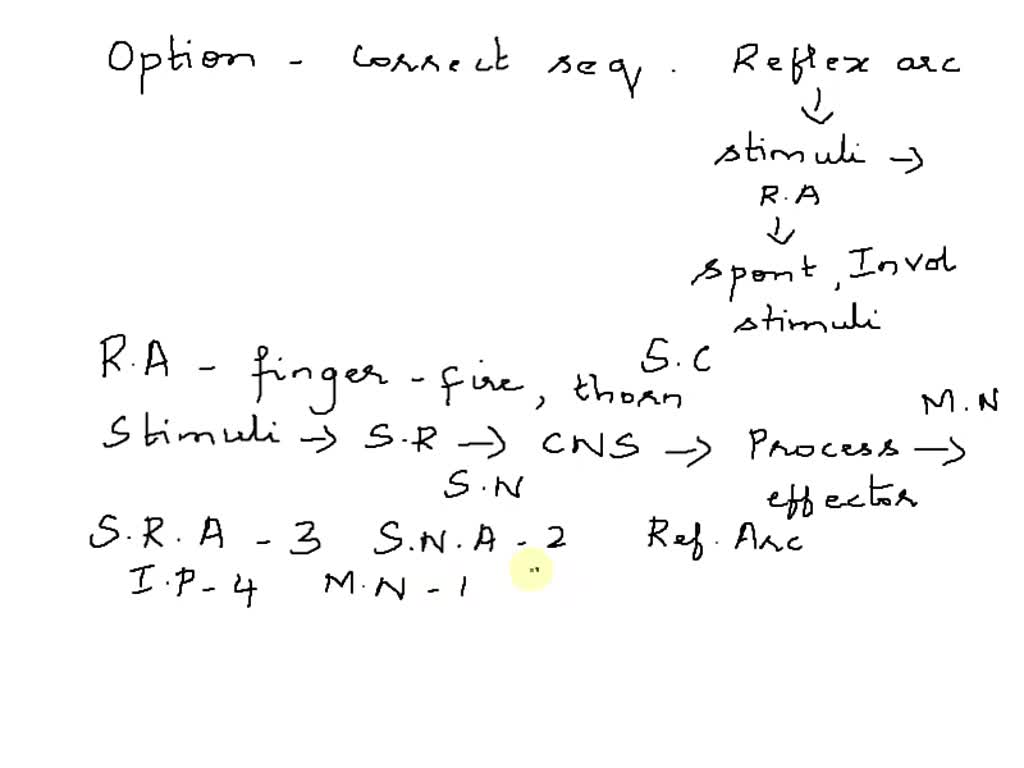 Option - Correct seq. Reflex arc
↓
stimuli →
R.A
↓
spont, Invol
stimuli
R.A - finger - fire, thorn S.C
Stimuli → S.R → CNS → Process → M.N
S.N effector
S.R.A - 3 S.N.A - 2 Ref. Arc
I.P - 4 M.N - 1